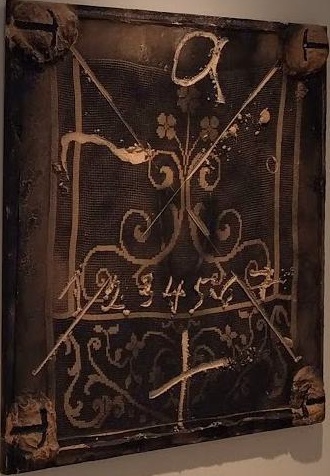 a
1 2 3 4 5 6 7
+